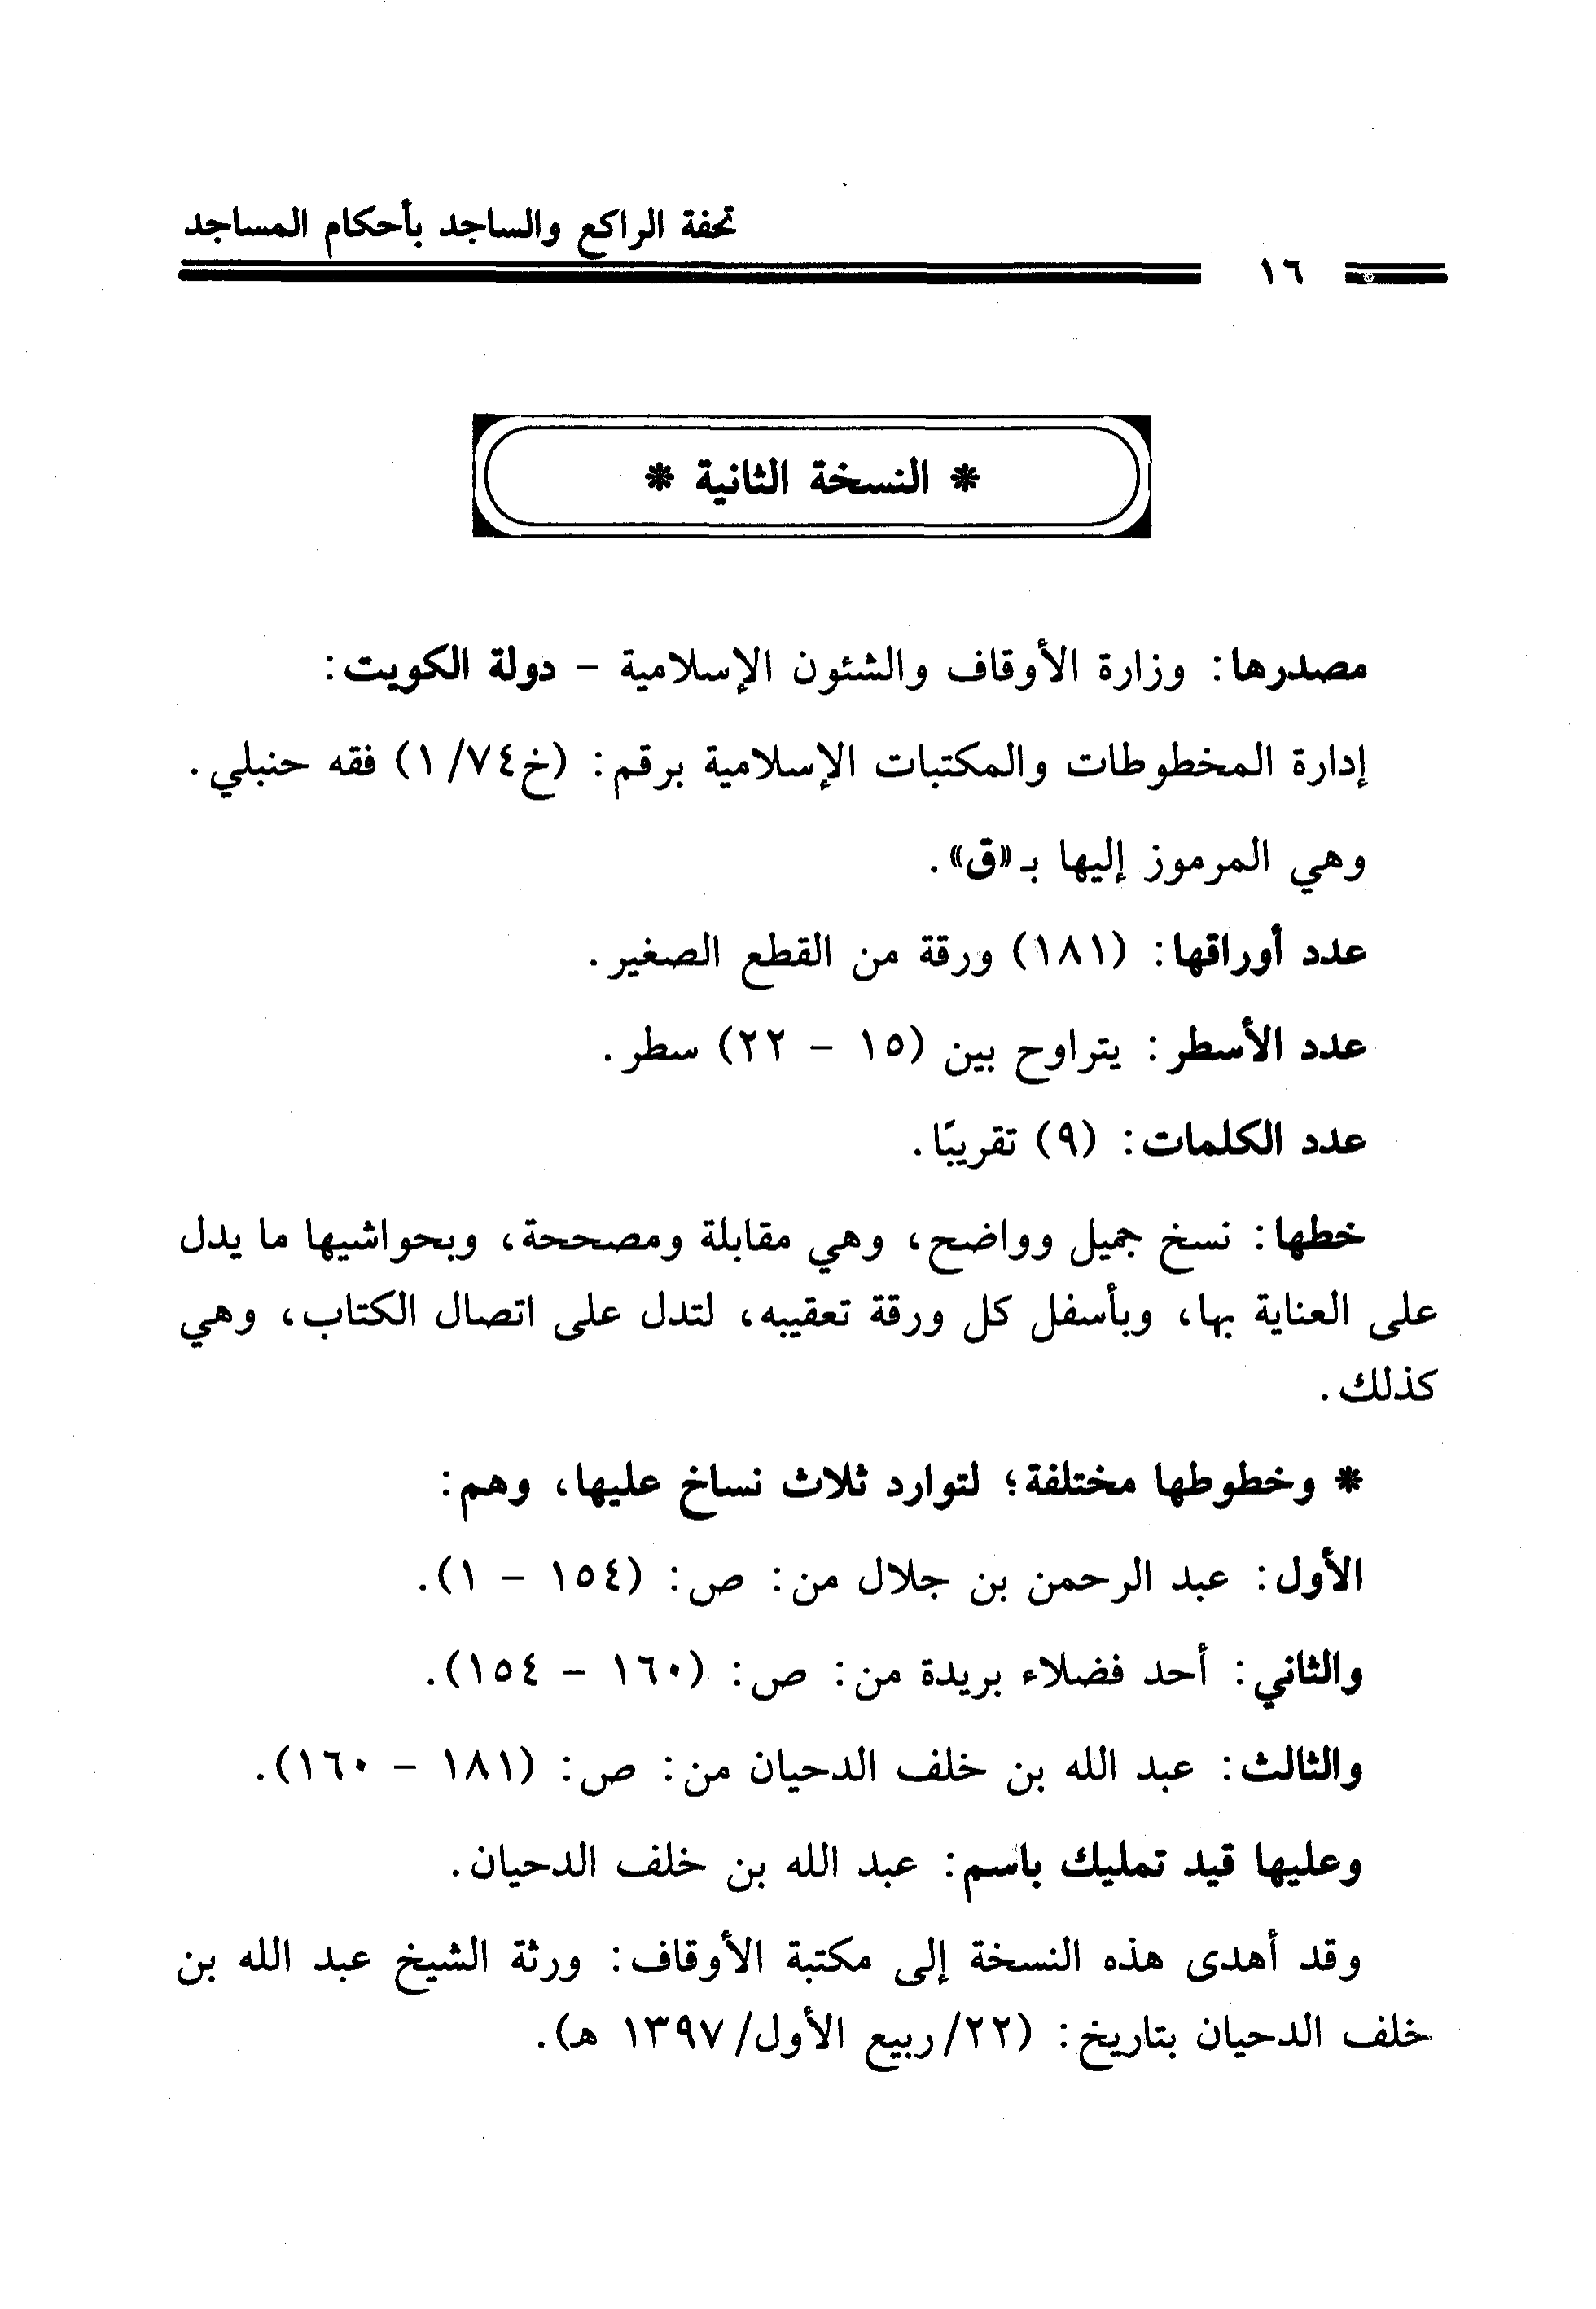 تحفة الراكع والساجد بأحكام المساجد
١٦
* النسخة الثانية *
مصدرها: وزارة الأوقاف والشئون الإسلامية - دولة الكويت:
إدارة المخطوطات والمكتبات الإسلامية برقم: (خ٧٤/ ١) فقه حنبلي.
وهي المرموز إليها بـ «ق».
عدد أوراقها: (١٨١) ورقة من القطع الصغير.
عدد الأسطر: يتراوح بين (١٥ - ٢٢) سطر.
عدد الكلمات: (٩) تقريبًا.
خطها: نسخ جميل وواضح، وهي مقابلة ومصححة، وبحواشيها ما يدل
على العناية بها، وبأسفل كل ورقة تعقيبه، لتدل على اتصال الكتاب، وهي
كذلك.
* وخطوطها مختلفة؛ لتوارد ثلاث نساخ عليها، وهم:
الأول: عبد الرحمن بن جلال من: ص: (١٥٤ - ١).
والثاني: أحد فضلاء بريدة من: ص: (١٦٠ - ١٥٤).
والثالث: عبد الله بن خلف الدحيان من: ص: (١٨١ - ١٦٠).
وعليها قيد تمليك باسم: عبد الله بن خلف الدحيان.
وقد أهدى هذه النسخة إلى مكتبة الأوقاف: ورثة الشيخ عبد الله بن
خلف الدحيان بتاريخ: (٢٢/ ربيع الأول/ ١٣٩٧ هـ).